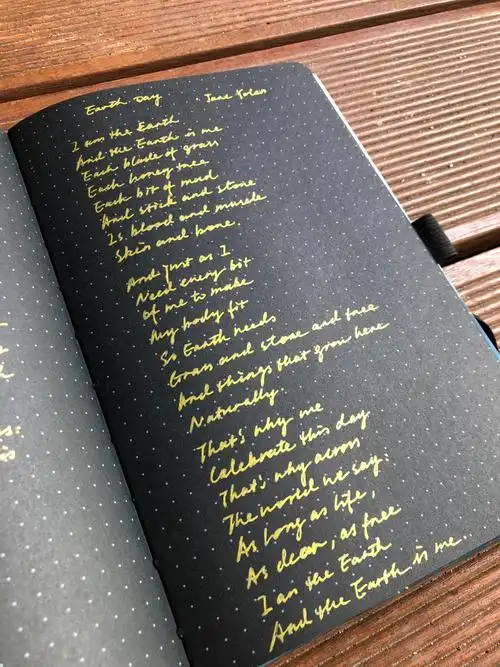 Earth Day Jane Yolen
I am the Earth
And the Earth is me
Each blade of grass
Each honey tree
Each bit of mud
And stick and stone
Is blood and muscle
Skin and bone.
And just as I
Need every bit
of me to make
My body fit
So Earth needs
Grass and stone and tree
And things that grow here
Naturally.
That's why we
Celebrate this day
That's why across
The world we say:
As long as life,
As dear, as free
I am the Earth
And the Earth is me.